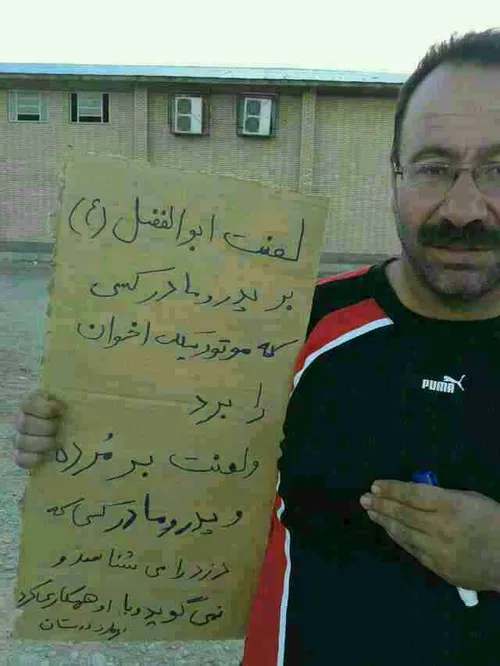 لعنت ابوالفضل (ع)
بر پدر و مادر کسی
که موتورسیکلت اخوان
را برد
و لعنت بر مُرده
و پدر و مادر کسی که
دزد را می شناسد و
نمی گوید و با او همکاری کرد
PUMA